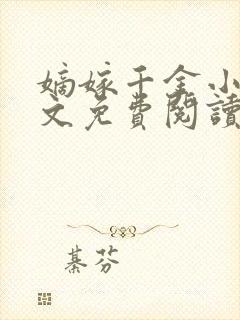 嫡嫁千金小
文免費閱讀
綦芬